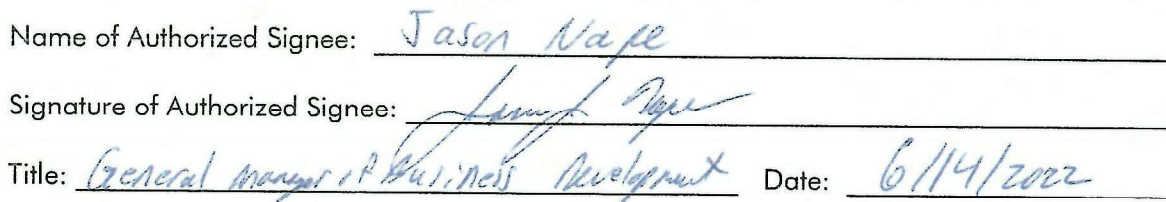 Name of Authorized Signee: Jason Nape
Signature of Authorized Signee:
Title: General manager of Business Development Date: 6/14/2022